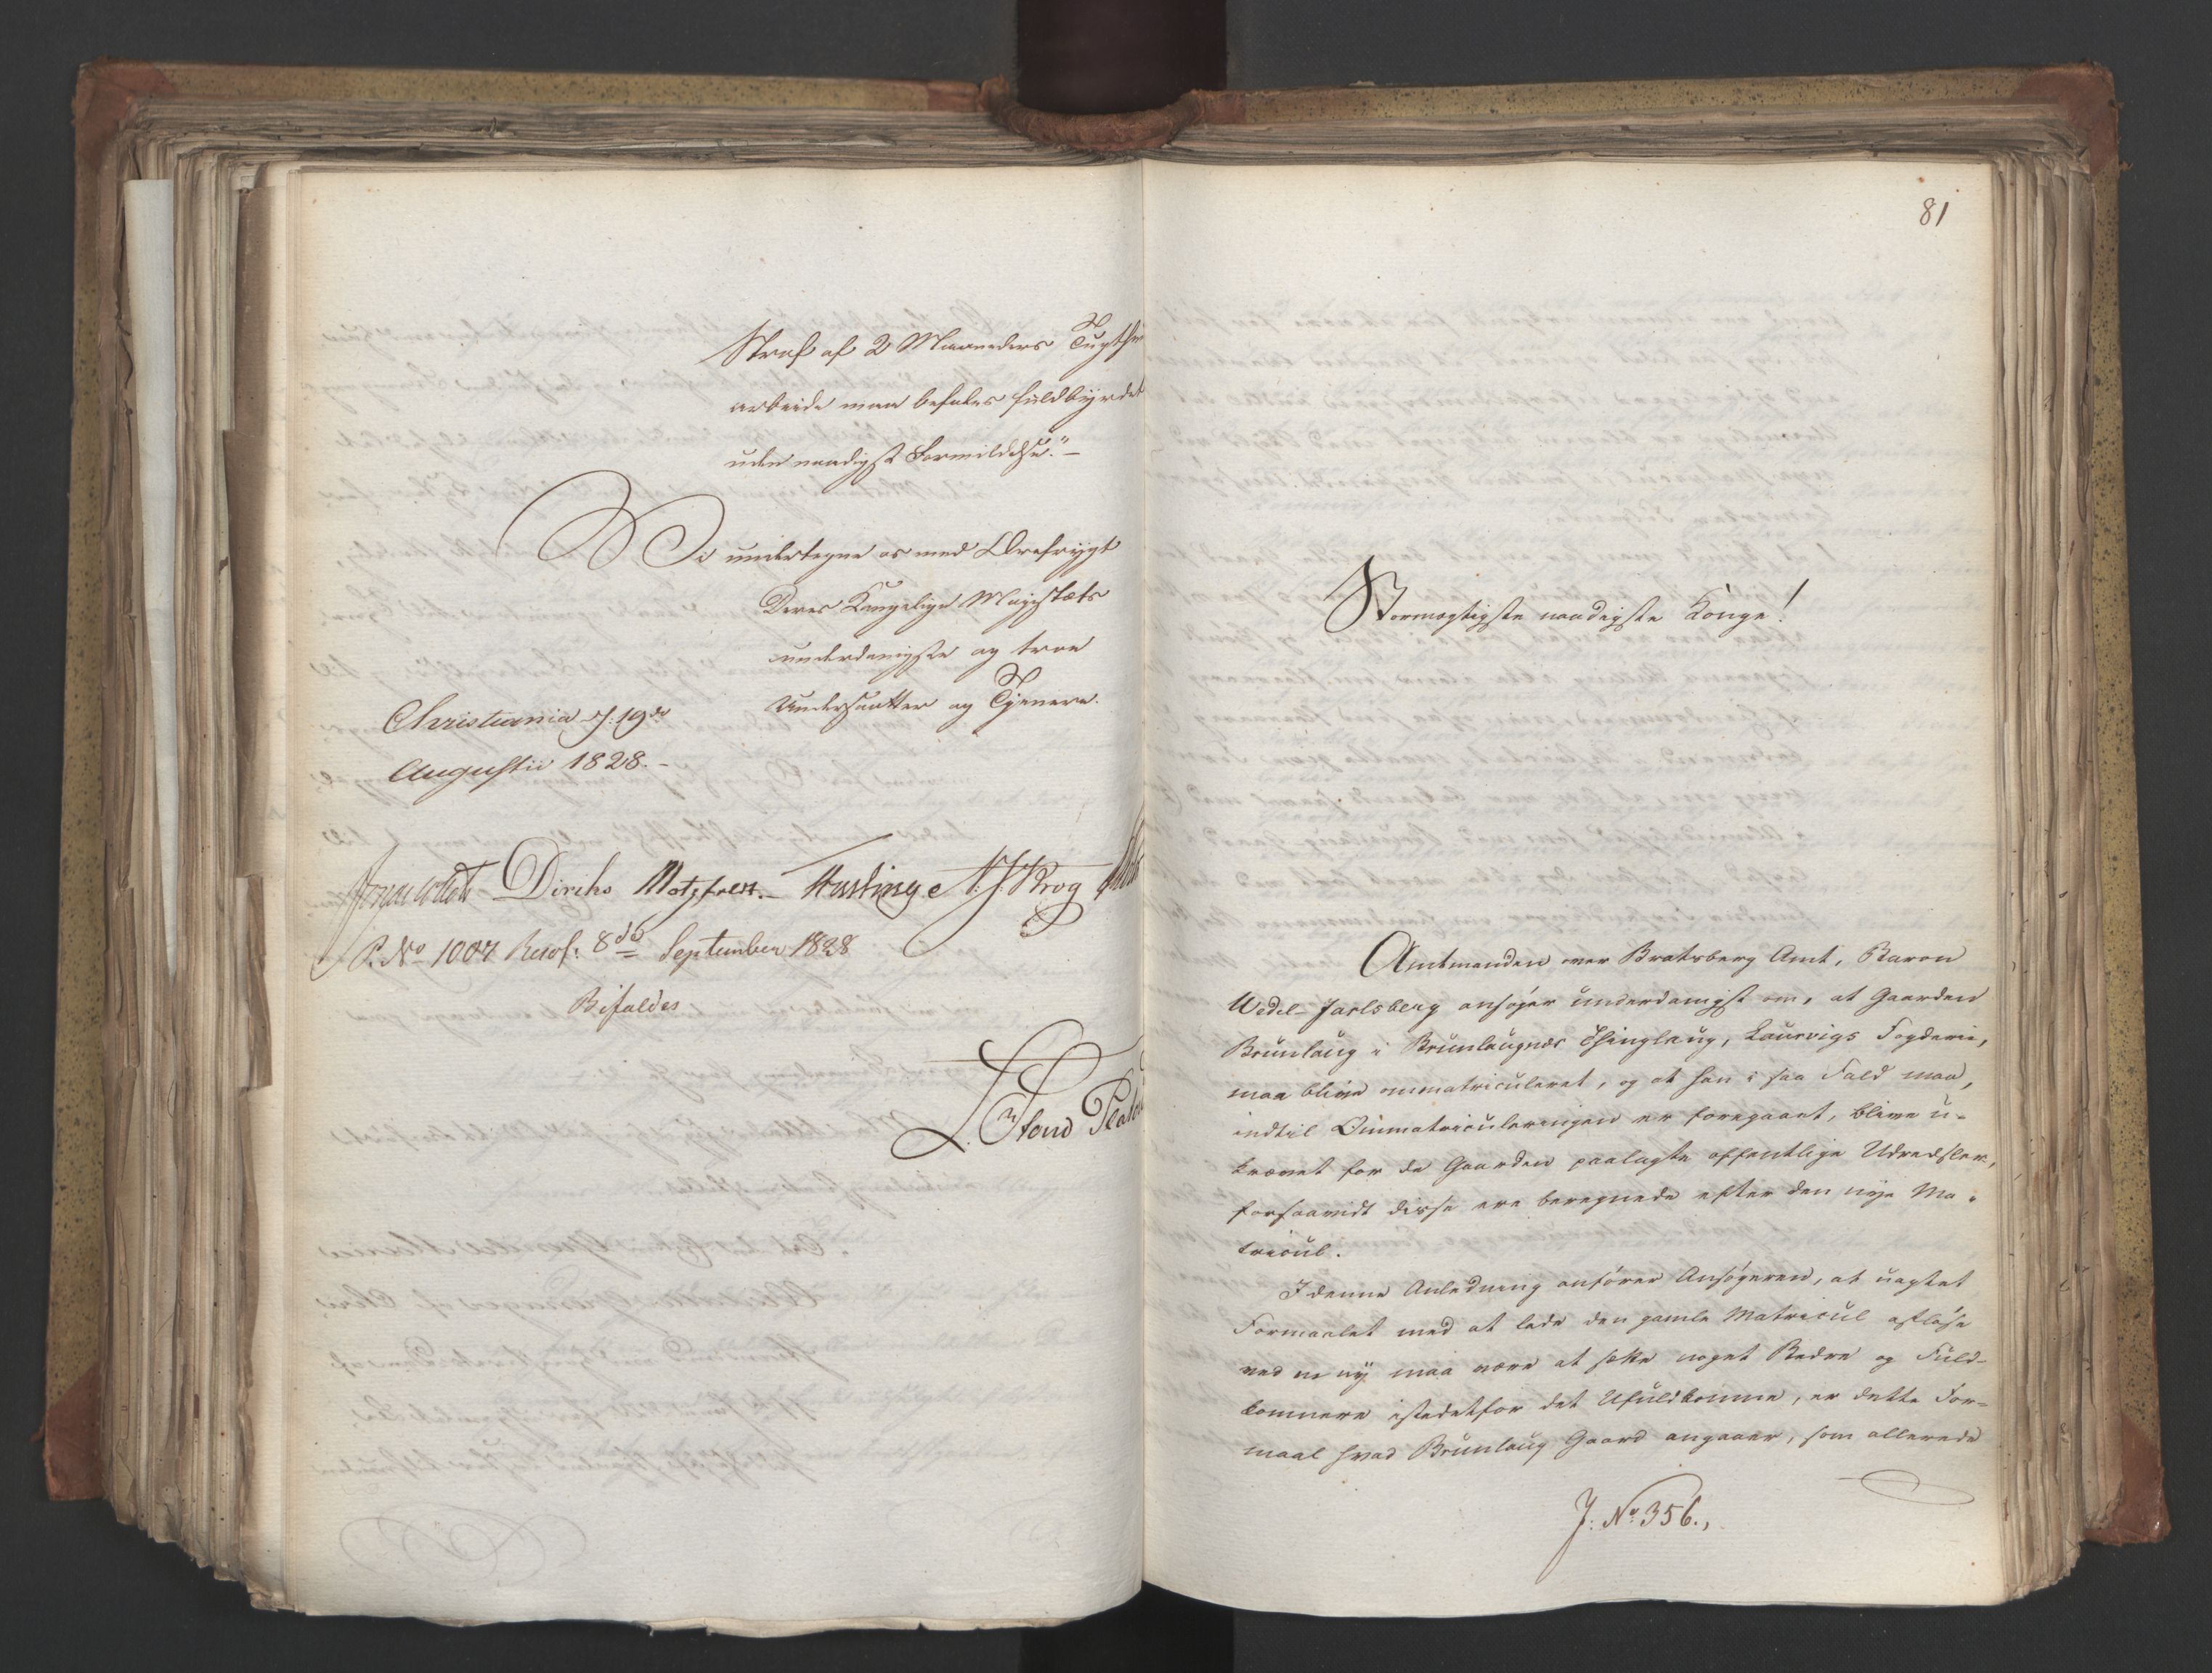 Straf af 2 Maaneders Tugthus
arbeide maa befales fuldbyrdet
uden naadigst Formildelse."-
Vi undertegne os med Ærefrygt
Deres Kongelige Majestæts
underdanigste og troe
Undersaatter og Tjenere.
Christiania d. 19de
Augustii 1828.-
Jonas Collett Diriks Motzfeldt. Fasting N. J. Krog
P. No 1007 Resol: 8de September 1828
Bifaldes
L. Stoud Platou
81
Stormægtigste naadigste Konge!
Amtmanden over Bratsberg Amt, Baron
Wedel-Jarlsberg ansøger underdanigst om, at Gaarden
Brunlaug i Brunlaugnæs Thinglaug, Laurvigs Fogderie,
maa blive ommatriculeret, og at han i saa Fald maa,
indtil Ommatriculeringen er foregaaet, blive u-
krævet for de Gaarden paalagte offentlige Udredsler,
forsaavidt disse ere beregnede efter den nye Ma-
tricul.
I denne Anledning anfører Ansøgeren, at uagtet
Formaalet med at lade den gamle Matricul afløse
ved en ny maa være at sætte noget Bedre og Fuld-
komnere istedetfor det Ufuldkomne, er dette For-
maal hvad Brunlaug Gaard angaaer, som allerede
J: No 356.,